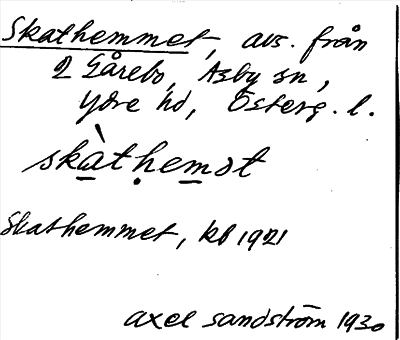 Skathemmet, avs. från
2 Gårebo, Asby sn,
Ydre hd, Österg. l.
skàtḥemət
Skathemmet, kb 1921
axel sandström 1930